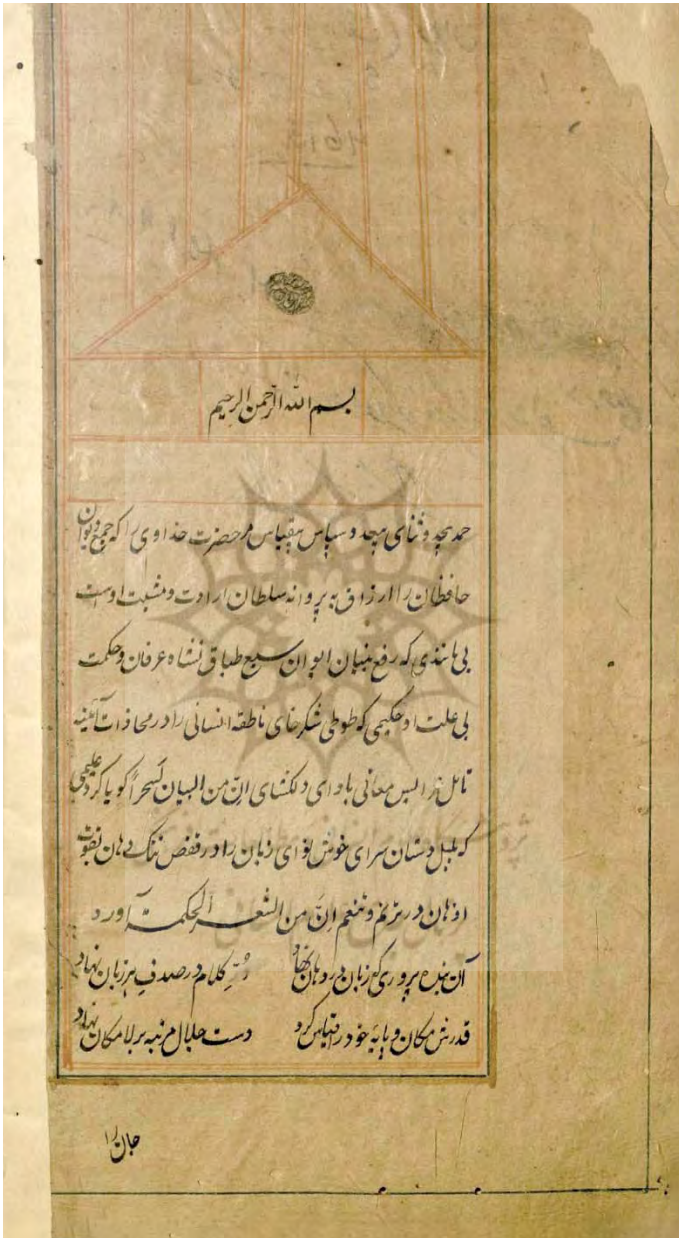 بسم الله الرحمن الرحیم
حمد بیحد و ثنای بیعد و سپاس بیقیاس مر حضرت خداوی را که جمع دیوان
حافظان را ارزاق به پروانه سلطان ارادت و مشیت اوست
بی مانندی که رفع بنیان ایوان سبع طباق نشاه عرفان و حکمت
بی علت او حکیمی که طوطی شکرخای ناطقه انسانی را در محاذات آئینه
تامل معانی بادای دلکشای انّ من البیان لسحراً کویا کرد علیمی
که بلبل دستان سرای خوش نوای زبان را در قفص تنک دهان بقوت
اذهان در ترنم و تنغم انّ من الشعر لحکمة آورد
آن بنده پروری که زبان در دهان نهاد درّ کلام در صدف هر زبان نهاد
قدرش مکان و پایه خود را قیاس کرد دست جلال مرتبه بر لامکان نهاد
جان را